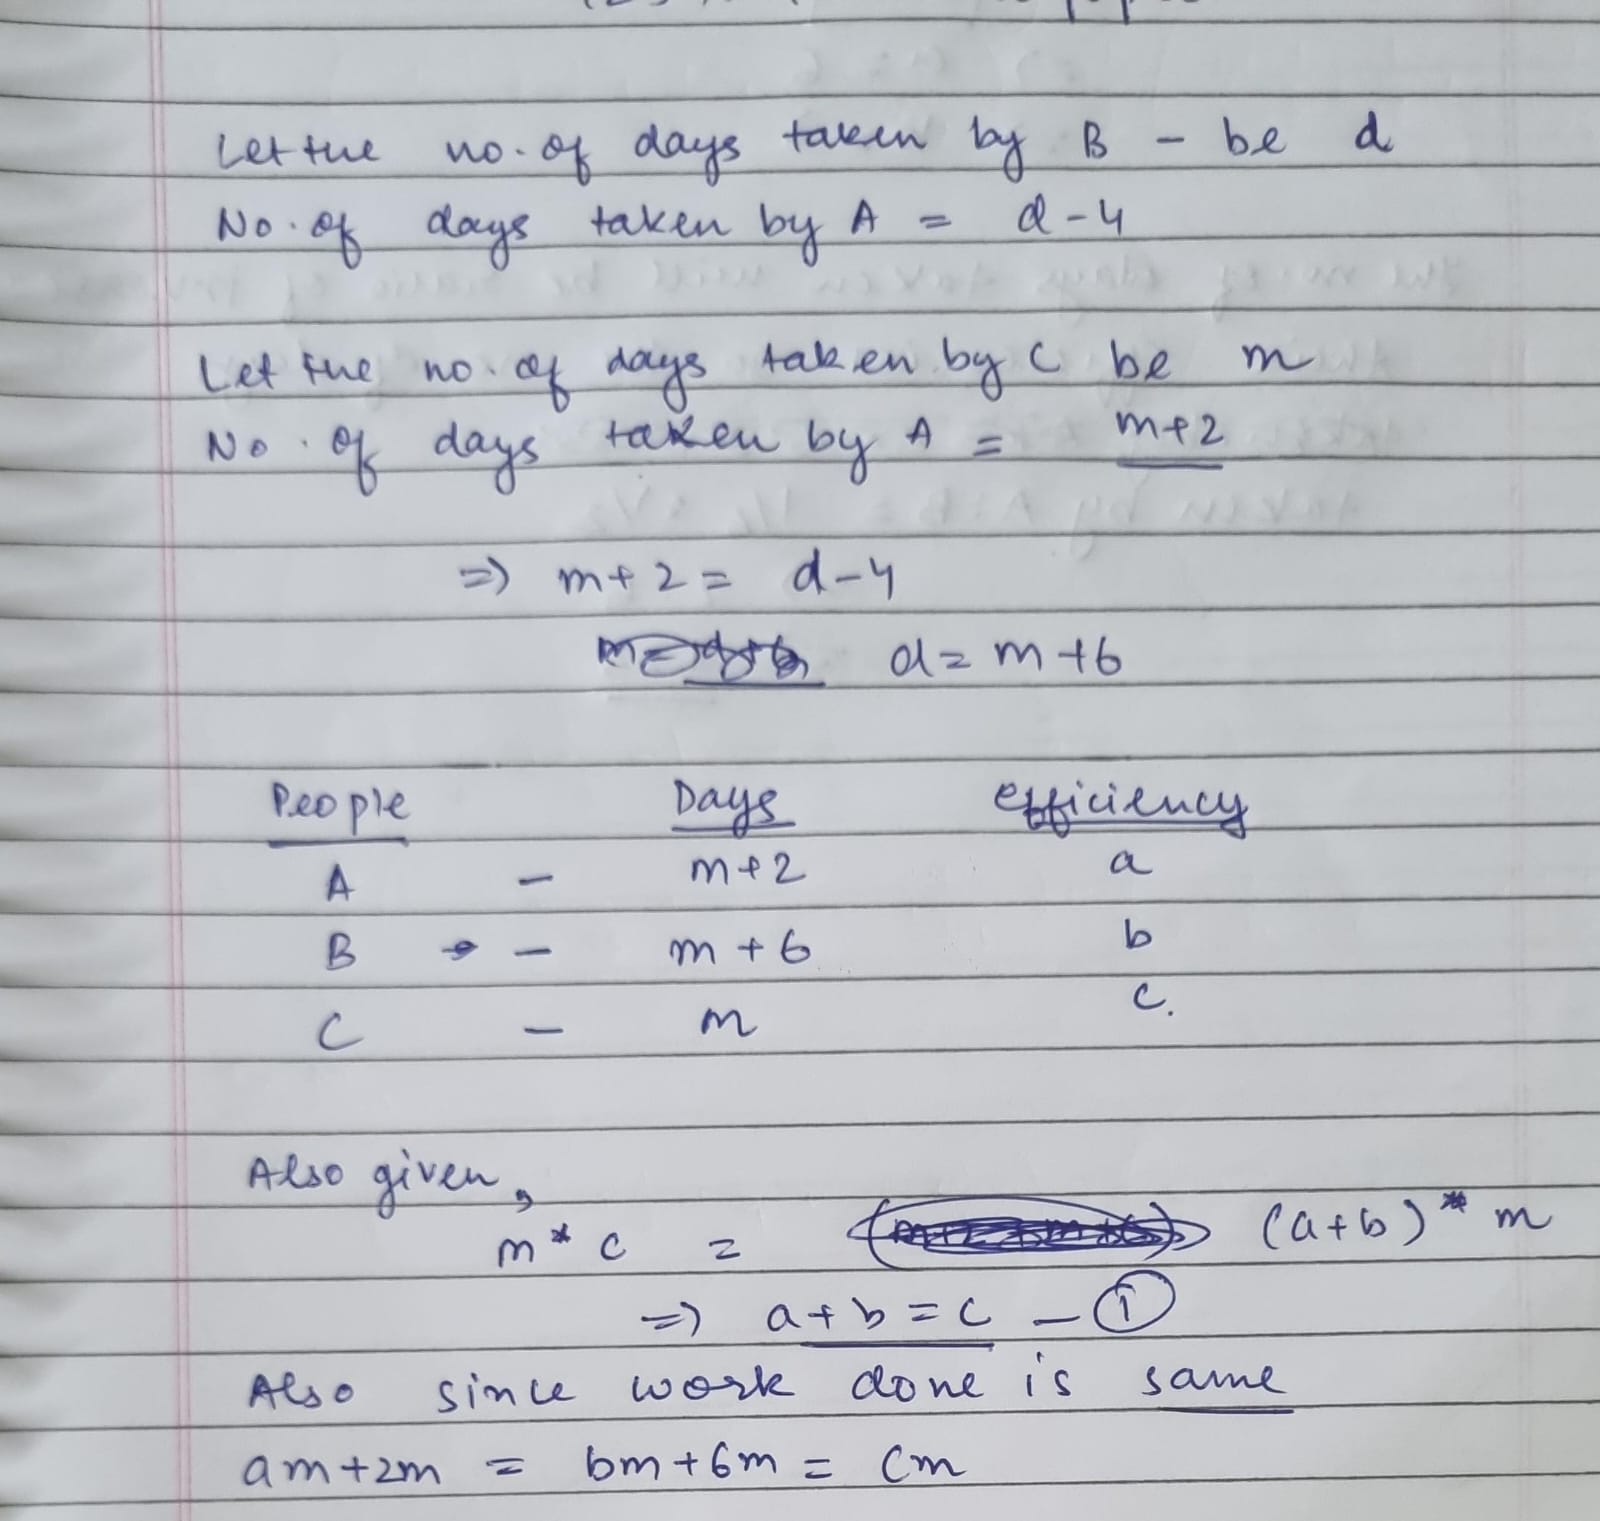 Let the no. of days taken by B - be d
No. of days taken by A = d-4
Let the no. of days taken by C be m
No. of days taken by A = m+2
=> m+2 = d-4
d = m+6
People Days efficiency
A - m+2 a
B - m+6 b
C - m c.
Also given,
m * c = (a+b) * m
=> a+b = c - 1
Also since work done is same
am+2m = bm+6m = cm